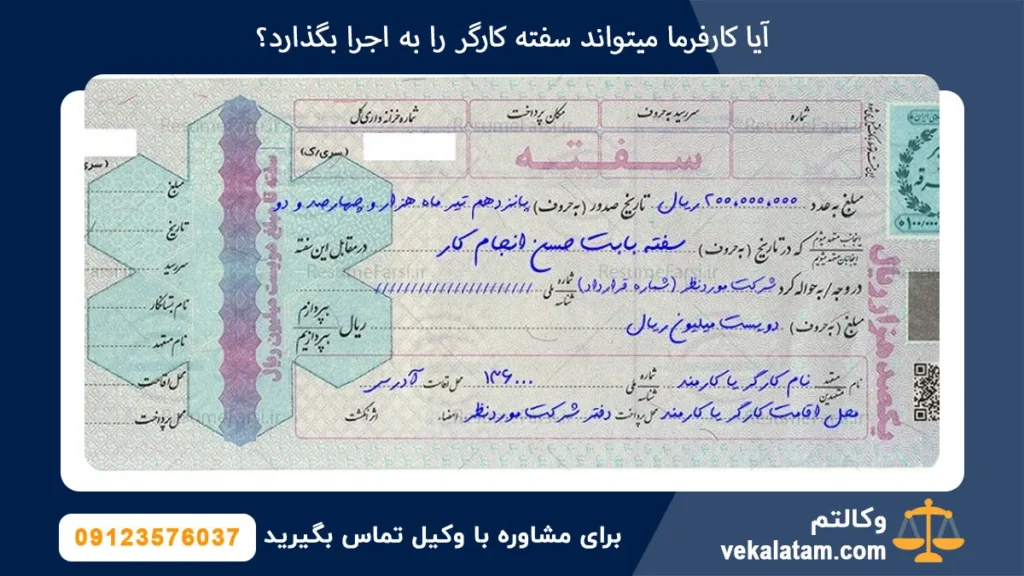 آیا کارفرما میتواند سفته کارگر را به اجرا بگذارد؟
شماره سررسید به حروف مکان پرداخت شماره خزانه داری کل
سفته
(سری/ک)
مبلغ به عدد ۲۰۰,۰۰۰,۰۰۰ ریال تاریخ صدور (به حروف) پانزدهم تیر ماه هزار و چهارصد و دو
اینجانب متعهد میشوم
اینجانبان متعهد میشویم
که در تاریخ (به حروف) سفته بابت حسن انجام کار در مقابل این سفته
در وجه / به حواله کرد شرکت موردنظر (شماره قرارداد) شماره شناسه ملی
مبلغ (به حروف) دویست میلیون ریال ریال بپردازم بپردازیم
نام متعهد متعهدین نام کارگر یا کارمند شماره شناسه ملی ۱۳۶۰۰۰ محل اقامت آدرس
محل اقامت کارگر یا کارمند محل پرداخت دفتر شرکت موردنظر امضاء اثر انگشت
سفته تا مبلغ دویست میلیون ریال
یکصد هزار ریال
مبلغ
تاریخ
سررسید
نام بستانکار
نام متعهد
محل اقامت
محل پرداخت
ResumeFarsi.ir
برای مشاوره با وکیل تماس بگیرید 09123576037
وکالتم
vekalatam.com